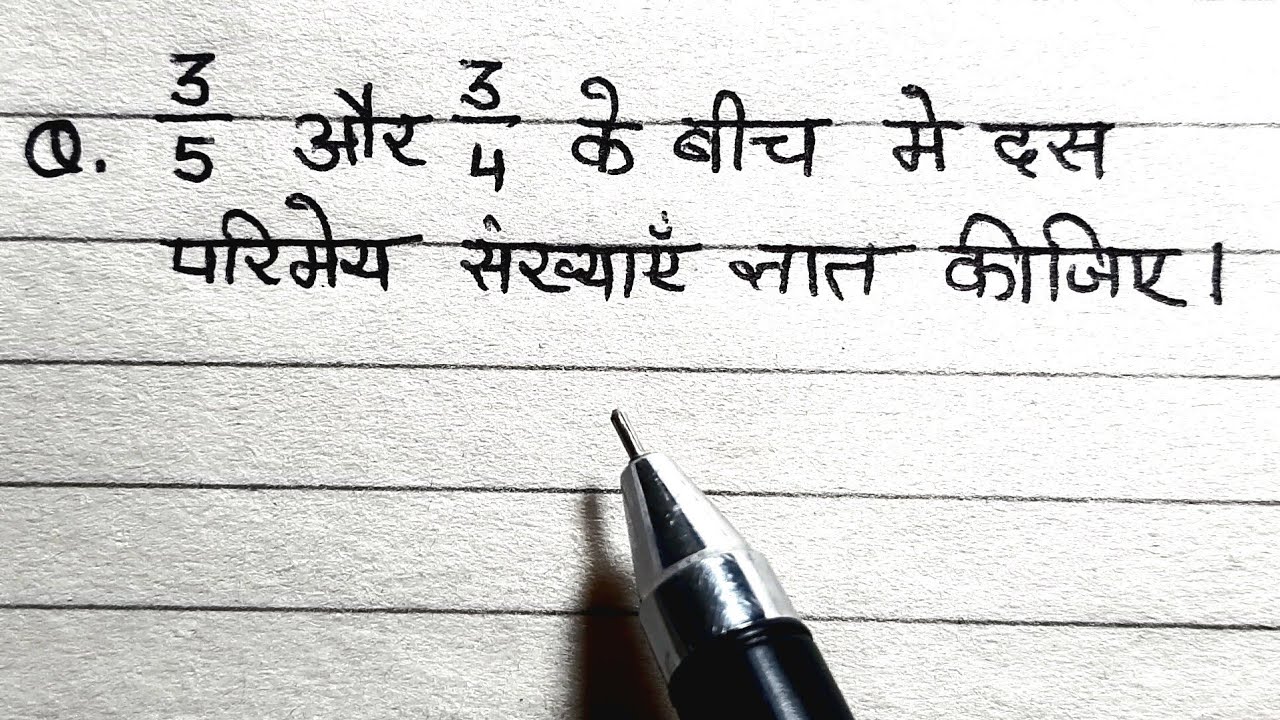 Q. 3/5 और 3/4 के बीच मे दस
परिमेय संख्याएँ ज्ञात कीजिए।